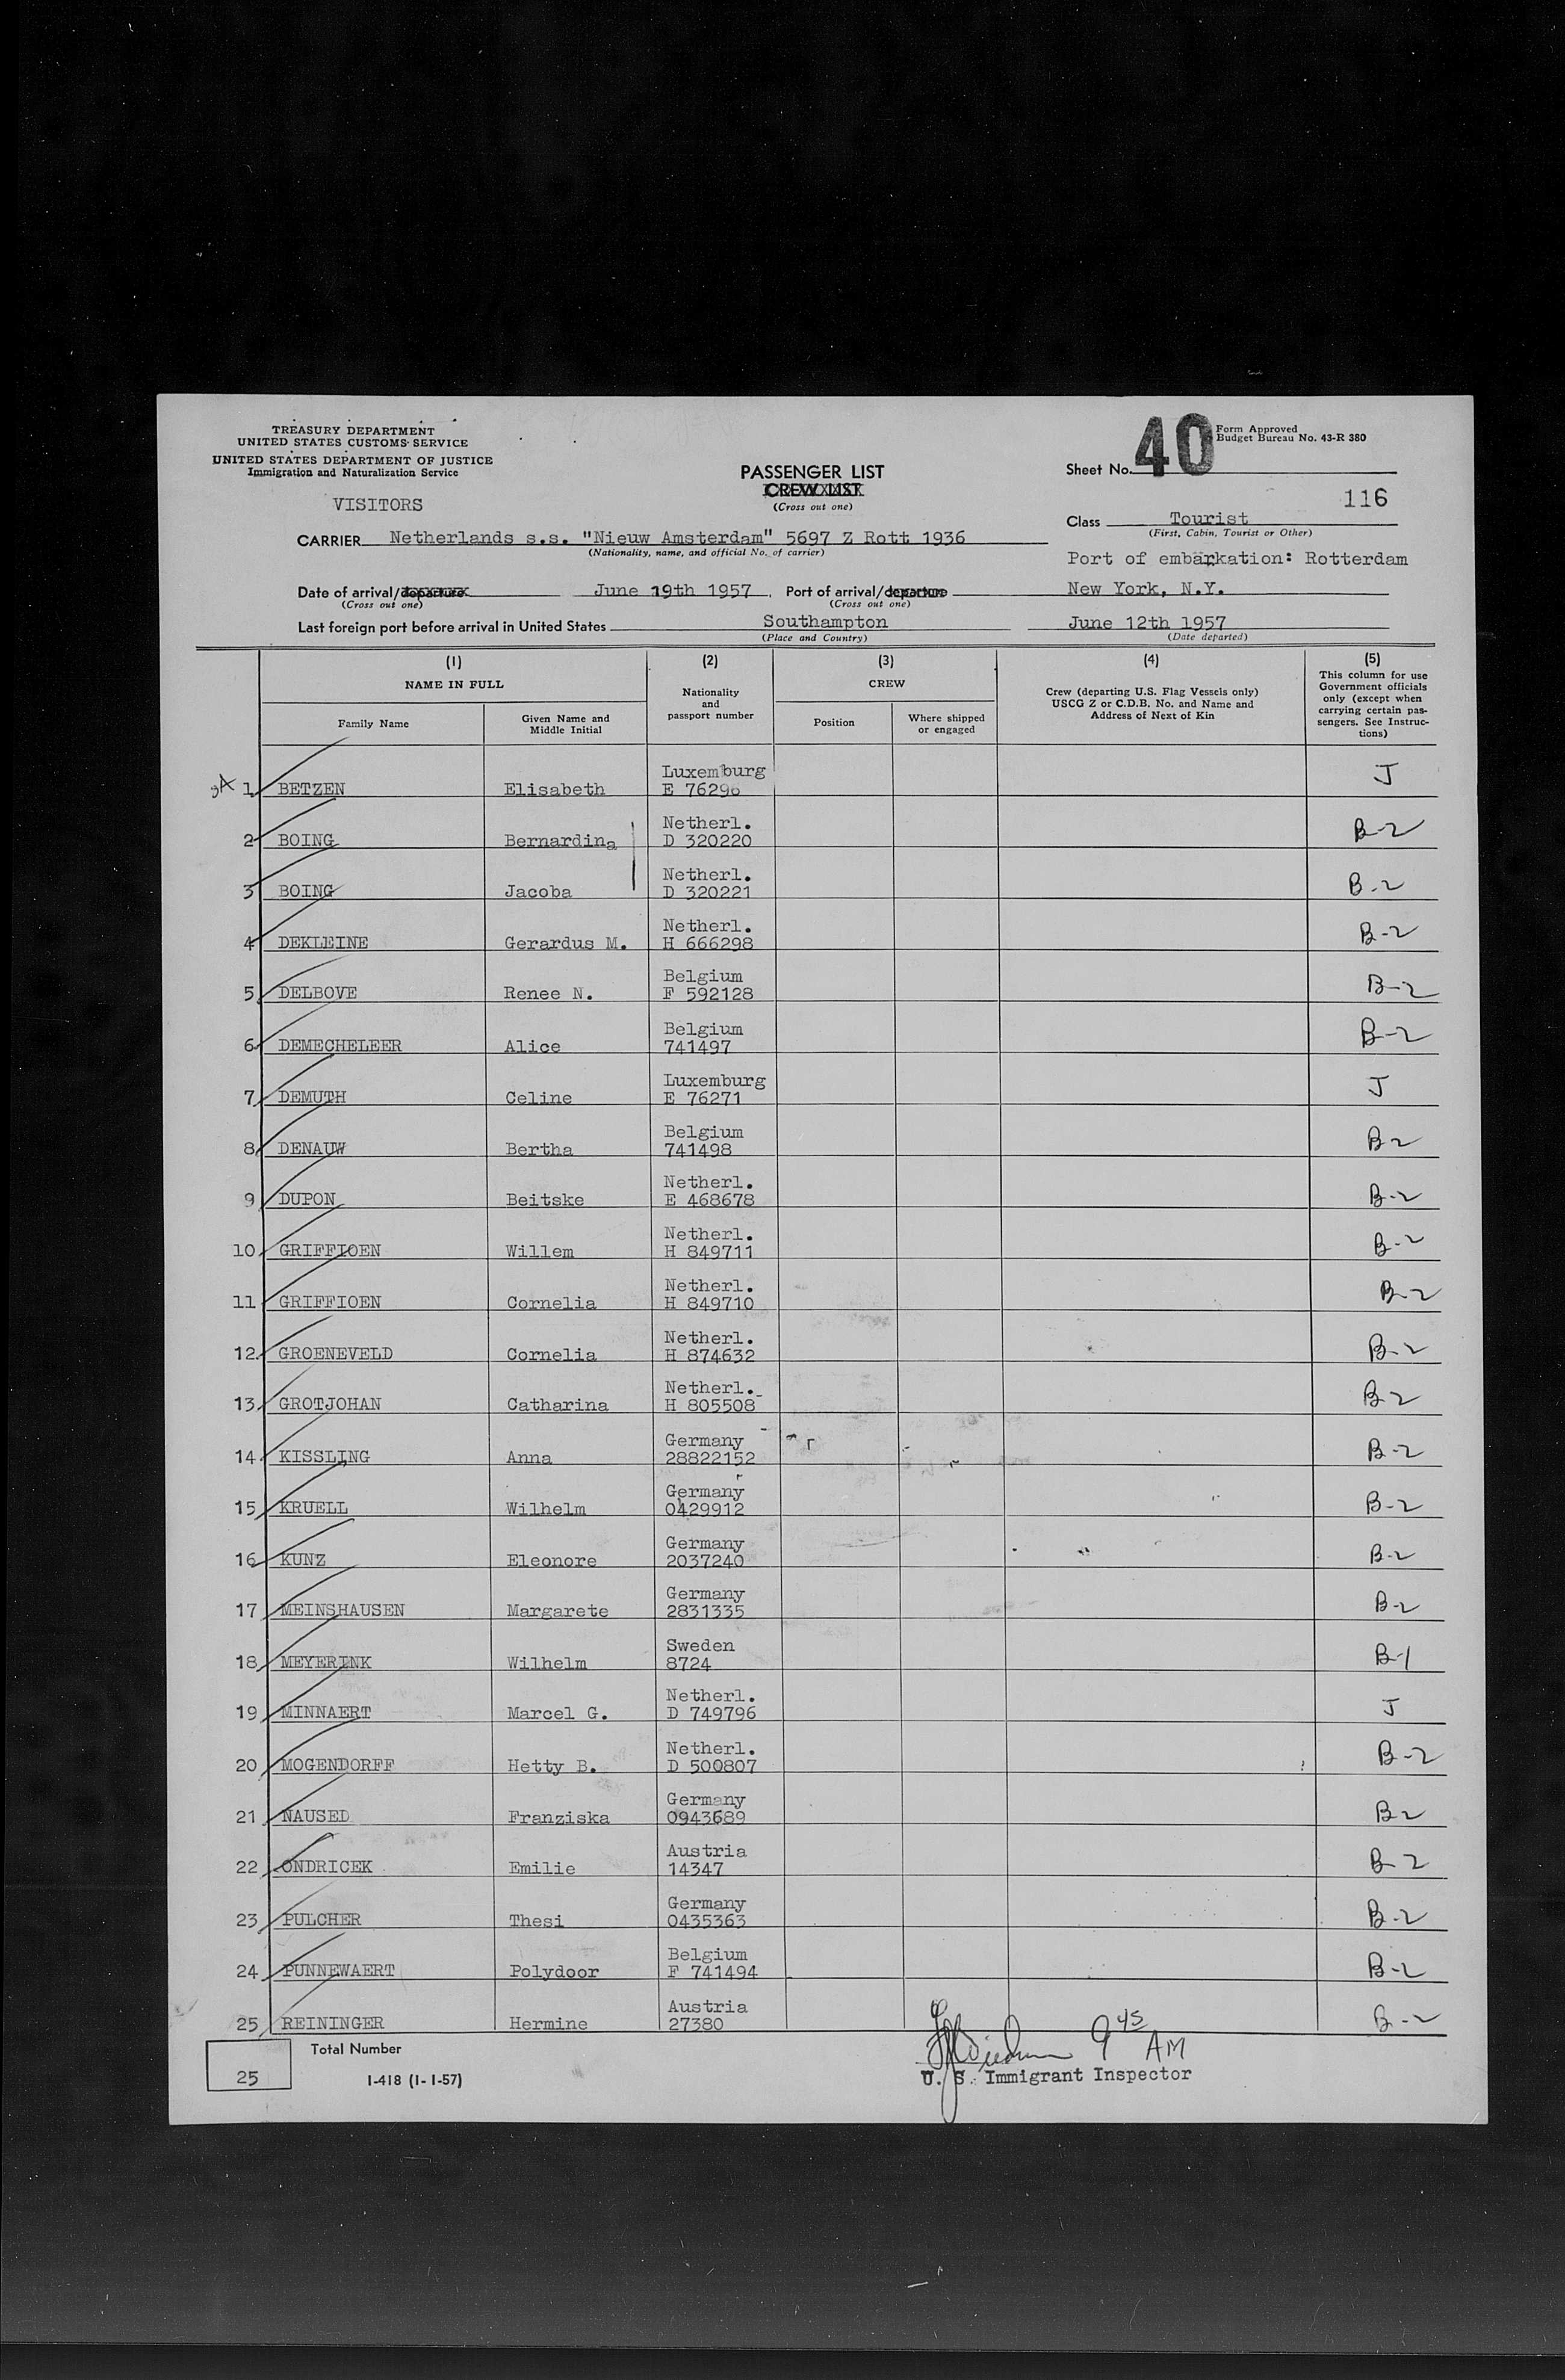 TREASURY DEPARTMENT
UNITED STATES CUSTOMS SERVICE
UNITED STATES DEPARTMENT OF JUSTICE
Immigration and Naturalization Service
VISITORS
PASSENGER LIST
CREW LIST
(Cross out one)
40
Form Approved
Budget Bureau No. 43-R 380
Sheet No.
116
Class Tourist
(First, Cabin, Tourist or Other)
CARRIER Netherlands s.s. "Nieuw Amsterdam" 5697 Z Rott 1936
(Nationality, name, and official No. of carrier)
Port of embarkation: Rotterdam
Date of arrival/departure June 19th 1957 Port of arrival/departure New York, N.Y.
(Cross out one) (Cross out one)
Last foreign port before arrival in United States Southampton June 12th 1957
(Place and Country) (Date departed)
(1) (2) (3) (4) (5)
NAME IN FULL
Nationality and passport number
CREW
Crew (departing U.S. Flag Vessels only)
USCG Z or C.D.B. No. and Name and
Address of Next of Kin
This column for use
Government officials
only (except when
carrying certain pas-
sengers. See Instruc-
tions)
Family Name
Given Name and
Middle Initial
Position
Where shipped
or engaged
Luxemburg
1 BETZEN Elisabeth E 76296 J
Netherl.
2 BOING Bernardina D 320220 B-2
Netherl.
3 BOING Jacoba D 320221 B-2
Netherl.
4 DEKLEINE Gerardus M. H 666298 B-2
Belgium
5 DELBOVE Renee N. F 592128 B-2
Belgium
6 DEMECHELEER Alice 741497 B-2
Luxemburg
7 DEMUTH Celine E 76271 J
Belgium
8 DENAUW Bertha 741498 B-2
Netherl.
9 DUPON Beitske E 468678 B-2
Netherl.
10 GRIFFIOEN Willem H 849711 B-2
Netherl.
11 GRIFFIOEN Cornelia H 849710 B-2
Netherl.
12 GROENEVELD Cornelia H 874632 B-2
Netherl.
13 GROTJOHAN Catharina H 805508 B-2
Germany
14 KISSLING Anna 28822152 B-2
Germany
15 KRUELL Wilhelm 0429912 B-2
Germany
16 KUNZ Eleonore 2037240 B-2
Germany
17 MEINSHAUSEN Margarete 2831335 B-2
Sweden
18 MEYERINK Wilhelm 8724 B-1
Netherl.
19 MINNAERT Marcel G. D 749796 J
Netherl.
20 MOGENDORFF Hetty B. D 500807 B-2
Germany
21 NAUSED Franziska 0943689 B-2
Austria
22 ONDRICEK Emilie 14347 B-2
Germany
23 PULCHER Thesi 0435363 B-2
Belgium
24 PUNNEWAERT Polydoor F 741494 B-2
Austria
25 REININGER Hermine 27380 B-2
Total Number
25
I-418 (1-1-57)
9 45 AM
U. S. Immigrant Inspector